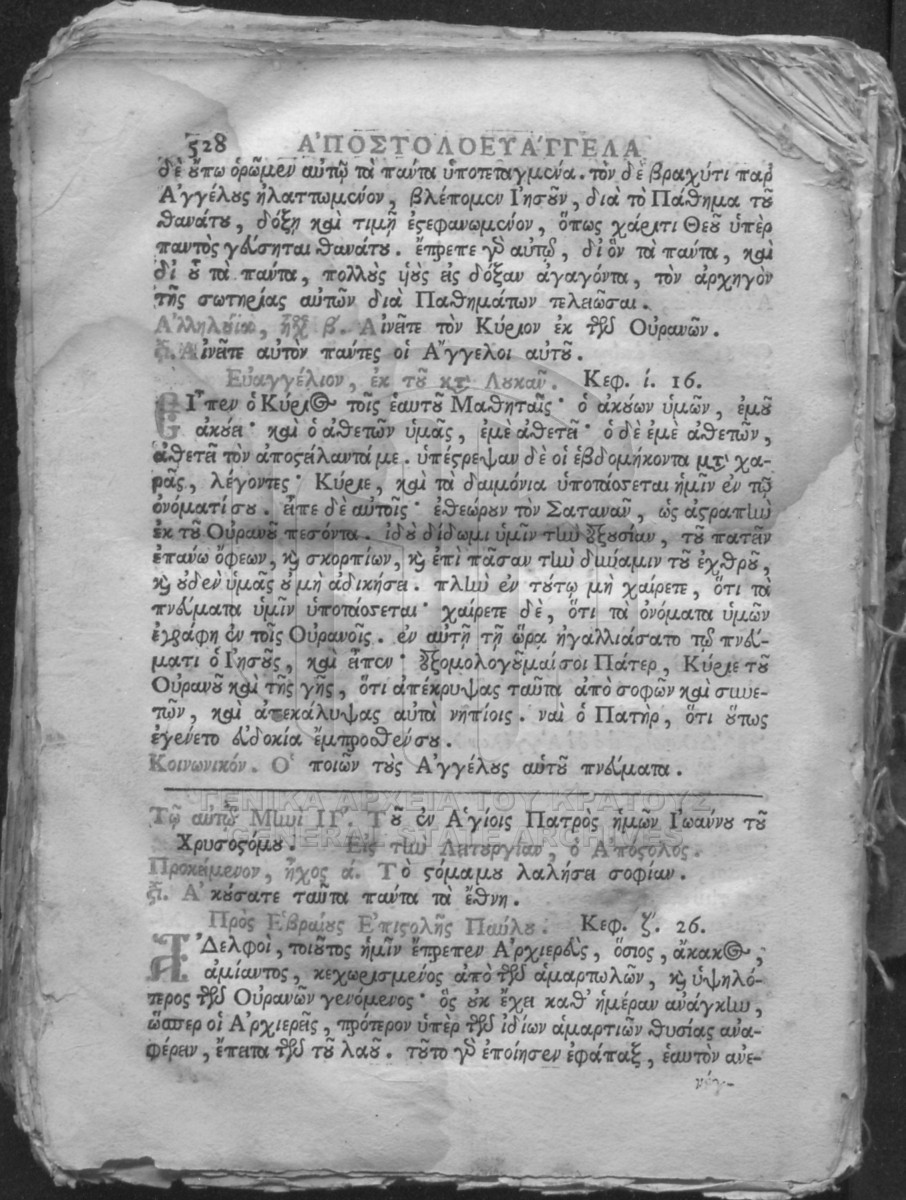 528 ἈΠΟΣΤΟΛΟΕΥΑΓΓΕΛΑ
δὲ οὔπω ὁρῶμεν αὐτῷ τὰ πάντα ὑποτεταγμένα. τὸν δὲ βραχύτι παρ'
Ἀγγέλους ἠλαττωμένον, βλέπομεν Ἰησοῦν, διὰ τὸ Πάθημα τοῦ
θανάτου, δόξῃ καὶ τιμῇ ἐστεφανωμένον, ὅπως χάριτι Θεοῦ ὑπὲρ
παντὸς γεύσηται θανάτου. ἔπρεπε γὰρ αὐτῷ, δι' ὃν τὰ πάντα, καὶ
δι' οὗ τὰ πάντα, πολλοὺς υἱοὺς εἰς δόξαν ἀγαγόντα, τὸν ἀρχηγὸν
τῆς σωτηρίας αὐτῶν διὰ Παθημάτων τελειῶσαι.
Ἀλληλούϊα, ἦχ. β'. Αἰνεῖτε τὸν Κύριον ἐκ τῶν Οὐρανῶν.
στ. Αἰνεῖτε αὐτὸν πάντες οἱ Ἄγγελοι αὐτοῦ.
Εὐαγγέλιον, ἐκ τοῦ κτ' Λουκᾶν. Κεφ. ί. 16.
ΕΙπεν ὁ Κύριος τοῖς ἑαυτοῦ Μαθηταῖς· ὁ ἀκούων ὑμῶν, ἐμοῦ
ἀκούει· καὶ ὁ ἀθετῶν ὑμᾶς, ἐμὲ ἀθετεῖ· ὁ δὲ ἐμὲ ἀθετῶν,
ἀθετεῖ τὸν ἀποστείλαντά με. ὑπέστρεψαν δὲ οἱ ἑβδομήκοντα μτ' χα-
ρᾶς, λέγοντες· Κύριε, καὶ τὰ δαιμόνια ὑποτάσσεται ἡμῖν ἐν τῷ
ὀνόματί σου. εἶπε δὲ αὐτοῖς· ἐθεώρουν τὸν Σατανᾶν, ὡς ἀστραπὴν
ἐκ τοῦ Οὐρανοῦ πεσόντα. ἰδοὺ δίδωμι ὑμῖν τὴν ἐξουσίαν, τοῦ πατεῖν
ἐπάνω ὄφεων, κ̀ σκορπίων, κ̀ ἐπὶ πᾶσαν τὴν δύναμιν τοῦ ἐχθροῦ,
κ̀ οὐδὲν ὑμᾶς οὐ μὴ ἀδικήσει. πλὴν ἐν τούτῳ μὴ χαίρετε, ὅτι τὰ
πνεύματα ὑμῖν ὑποτάσσεται· χαίρετε δὲ, ὅτι τὰ ὀνόματα ὑμῶν
ἐγράφη ἐν τοῖς Οὐρανοῖς. ἐν αὐτῇ τῇ ὥρᾳ ἠγαλλιάσατο τῷ πνεύ-
ματι ὁ Ἰησοῦς, καὶ εἶπεν· ἐξομολογοῦμαί σοι Πάτερ, Κύριε τοῦ
Οὐρανοῦ καὶ τῆς γῆς, ὅτι ἀπέκρυψας ταῦτα ἀπὸ σοφῶν καὶ συνε-
τῶν, καὶ ἀπεκάλυψας αὐτὰ νηπίοις. ναὶ ὁ Πατὴρ, ὅτι οὕτως
ἐγένετο εὐδοκία ἔμπροσθέν σου.
Κοινωνικόν. Ὁ ποιῶν τοὺς Ἀγγέλους αὑτοῦ πνεύματα.
ΓΕΝΙΚΑ ΑΡΧΕΙΑ ΤΟΥ ΚΡΑΤΟΥΣ
Τῷ αὐτῷ Μηνὶ ΙΓ'. Τοῦ ἐν Ἁγίοις Πατρὸς ἡμῶν Ἰωάννου τοῦ
GENERAL STATE ARCHIVES
Χρυσοστόμου. Εἰς τὴν Λειτουργίαν, ὁ Ἀπόστολος.
Προκείμενον, ἦχος ά. Τὸ στόμα μου λαλήσει σοφίαν.
στ. Ἀκούσατε ταῦτα πάντα τὰ ἔθνη.
Πρὸς Ἑβραίους Ἐπιστολῆς Παύλου. Κεφ. ζ'. 26.
ἈΔελφοὶ, τοιοῦτος ἡμῖν ἔπρεπεν Ἀρχιερεὺς, ὅσιος, ἄκακος,
ἀμίαντος, κεχωρισμένος ἀπὸ τῶν ἁμαρτωλῶν, κ̀ ὑψηλό-
τερος τῶν Οὐρανῶν γενόμενος· ὃς οὐκ ἔχει καθ' ἡμέραν ἀνάγκην,
ὥσπερ οἱ Ἀρχιερεῖς, πρότερον ὑπὲρ τῶν ἰδίων ἁμαρτιῶν θυσίας ἀνα-
φέρειν, ἔπειτα τῶν τοῦ λαοῦ. τοῦτο γὰρ ἐποίησεν ἐφάπαξ, ἑαυτὸν ἀνε-
νέγ-